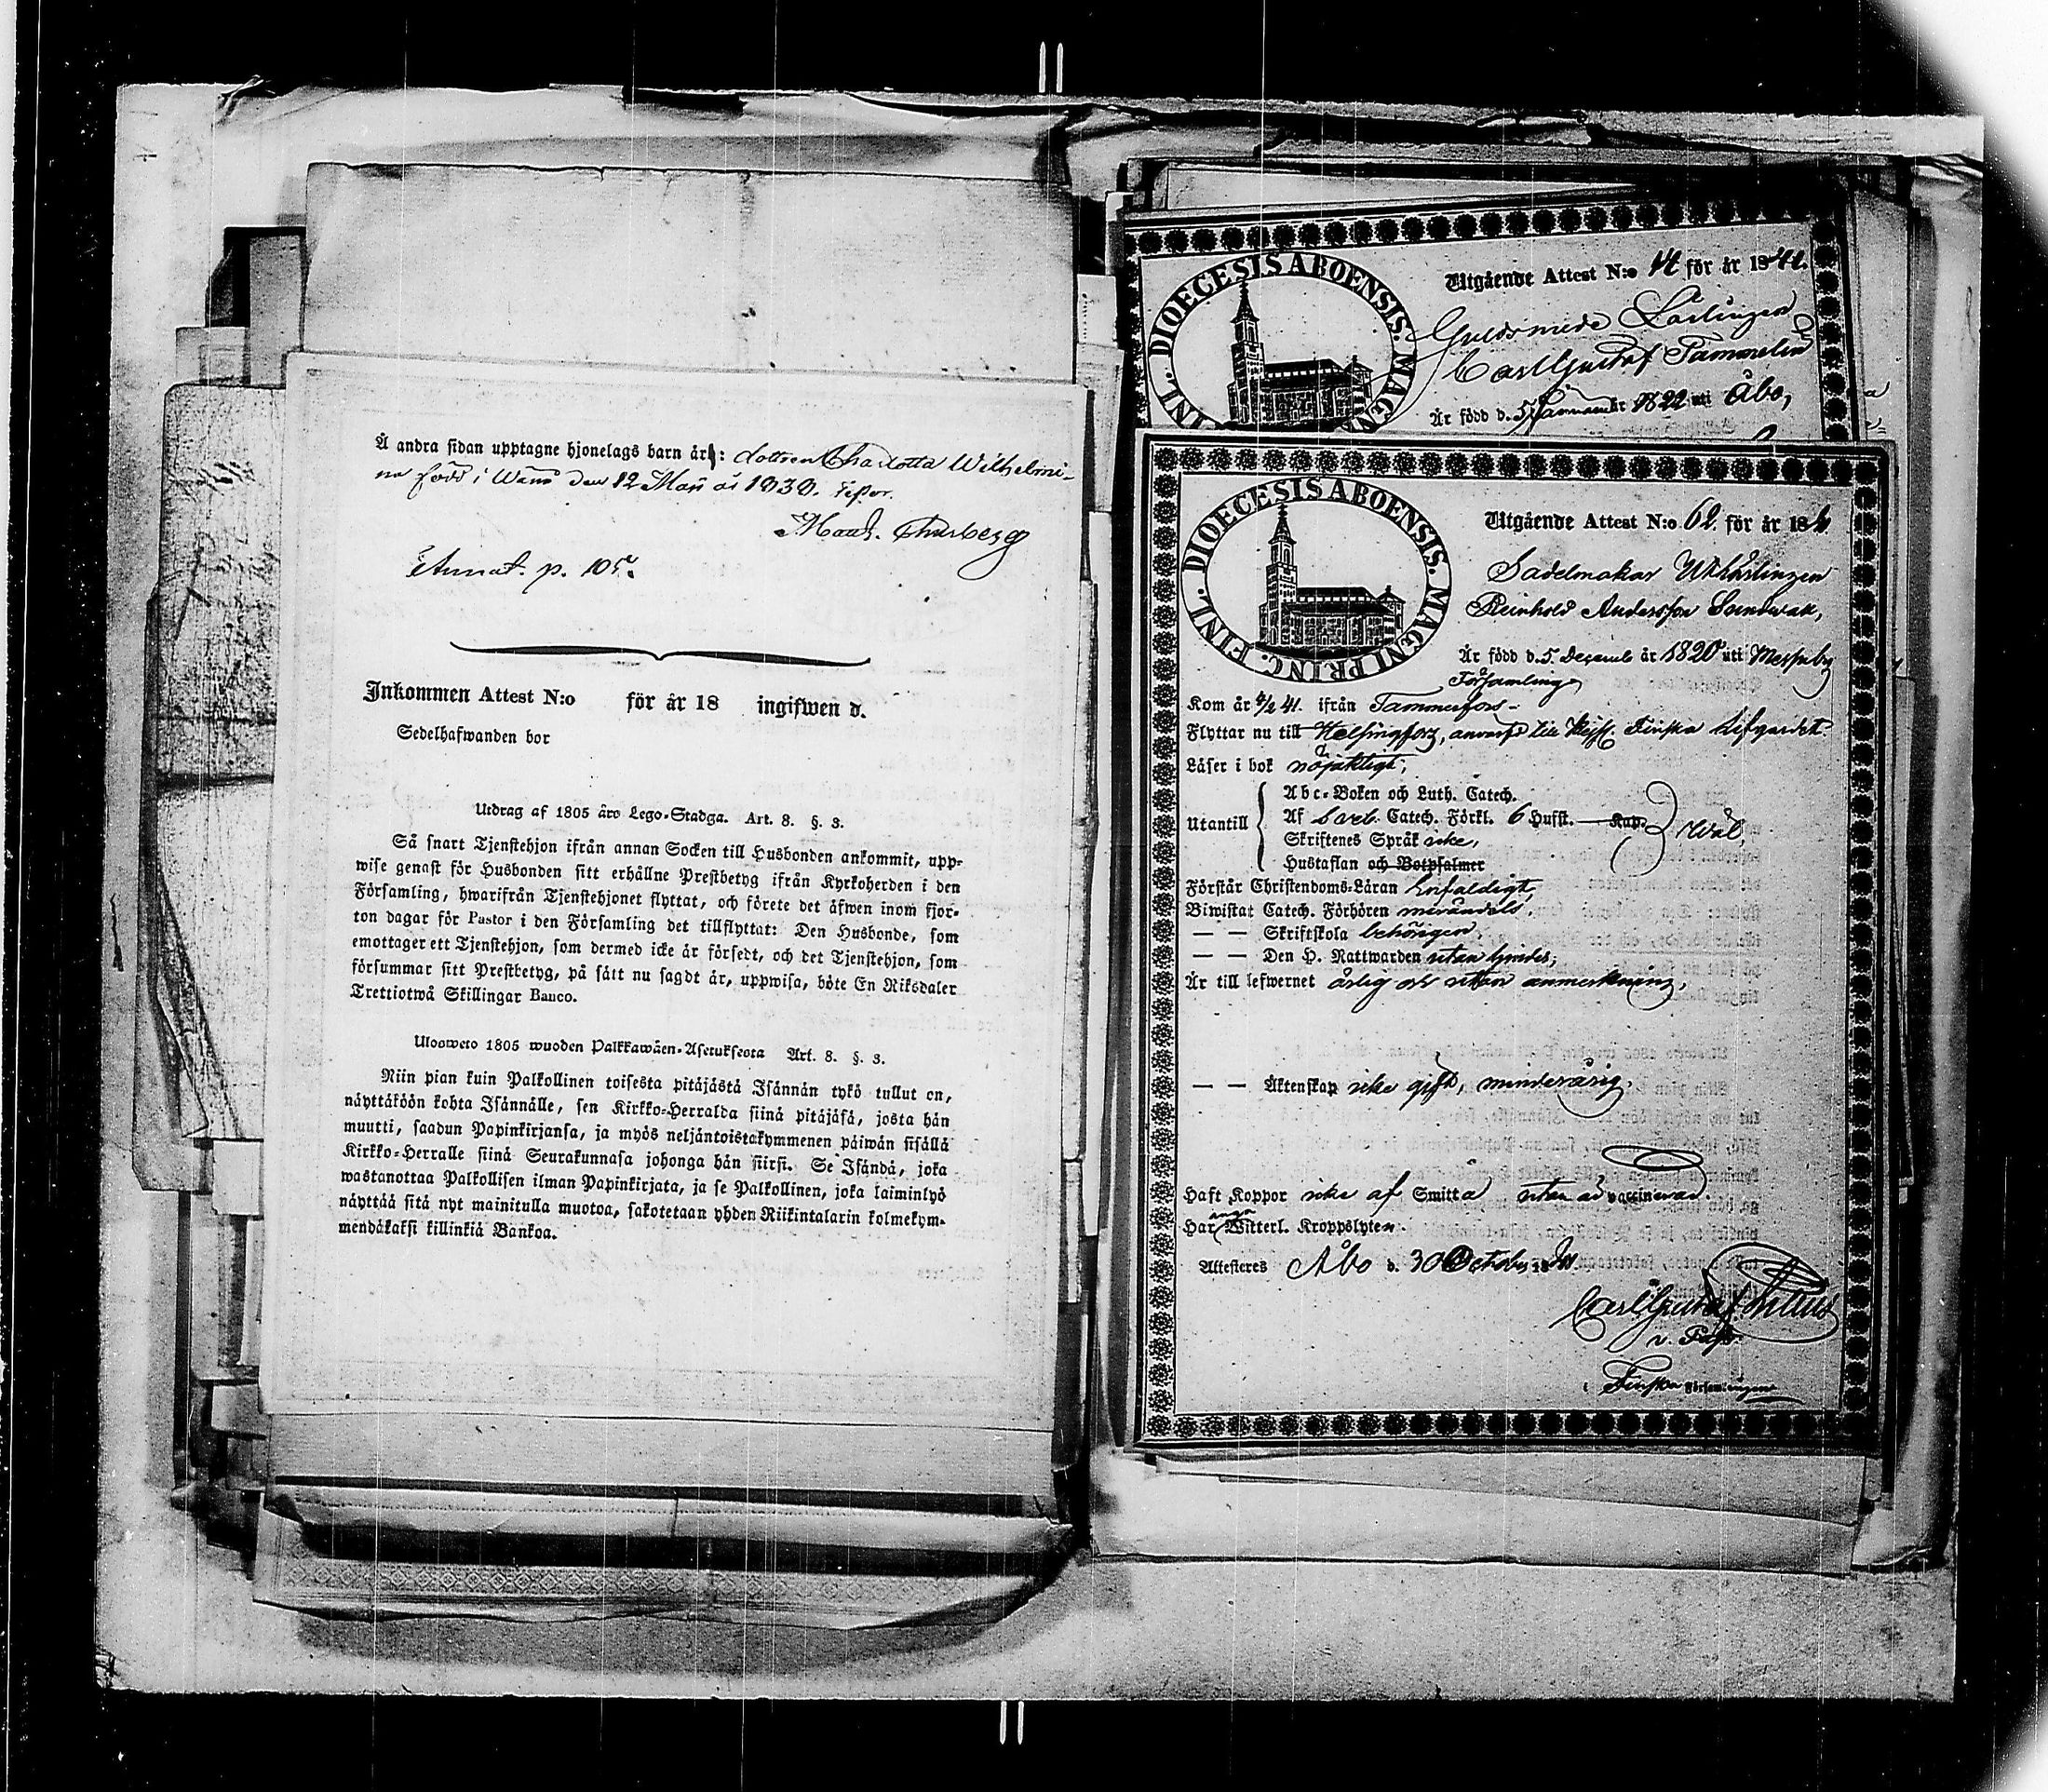 Å andra sidan upptagne hjonelags barn är: dottren Charlotta Wilhelmi-
na född i Wånå den 12 Maji år 1839. testor.
Annot. p. 105.
Inkommen Attest N:o för år 18 ingifwen d.
Sedelhafwanden bor
Utdrag af 1805 års Lego-Stadga. Art. 8. §. 3.
Så snart Tjenstehjon ifrån annan Socken till Husbonden ankommit, upp-
wise genast för Husbonden sitt erhållne Prestbetyg ifrån Kyrkoherden i den
Församling, hwarifrån Tjenstehjonet flyttat, och förete det äfwen inom fjor-
ton dagar för Pastor i den Församling det tillflyttat: Den Husbonde, som
emottager ett Tjenstehjon, som dermed icke är försedt, och det Tjenstehjon, som
försummar sitt Prestbetyg, på sätt nu sagdt är, uppwisa, böte En Riksdaler
Trettiotwå Skillingar Banco.
Ulosweto 1805 wuoden Palkkawäen-Asetuksesta Art. 8. §. 3.
Niin pian kuin Palkollinen toisesta pitäjästä Isännän tykö tullut on,
näyttäköön kohta Isännälle, sen Kirkko-Herralda siinä pitäjäsä, josta hän
muutti, saadun Papinkirjansa, ja myös neljäntoistakymmenen päiwän sisällä
Kirkko-Herralle siinä Seurakunnasa johonga hän siirsi. Se Isändä, joka
wastanottaa Palkollisen ilman Papinkirjata, ja se Palkollinen, joka laiminlyö
näyttää sitä nyt mainitulla muotoa, sakotetaan yhden Riikintalarin kolmekym-
mendäkaksi killinkiä Bankoa.
DIOECESIS ABOENSIS. MAGNI
FINL.
Utgående Attest N:o 14 för år 1841.
Guldsmeds Lärlingen
Carl Gustaf Tammelin
Är född d. 5 Januari år 1822 uti Åbo,
DIOECESIS ABOENSIS. MAGNI PRINC. FINL.
Utgående Attest N:o 62. för år 184
Sadelmakar Lärlingen
Reinhold Andersson Sundwall,
Är född d. 5. Decemb år 1820 uti Messuby
Församling
Kom år 4/2 41. ifrån Tammerfors-
Flyttar nu till Helsingfors, till Kejs. Finska Lifgardet.
Läser i bok nöjaktigt,
Utantill
Abc-Boken och Luth. Catech.
Af Sveb. Catech. Förkl. 6 Hufst. Kap.
Wäl,
Skriftenes Språk icke,
Hustaflan och Botpsalmer
Förstår Christendoms-Läran enfaldigt,
Biwistat Catech. Förhören
— — Skriftskola behörigen,
— — Den H. Nattwarden utan hinder;
Är till lefwernet ärlig och utan anmerkning,
— — Äktenskap icke gift, minderårig.
Haft Koppor icke af Smitta utan är vaccinerad.
Har inga Witterl. Kroppslyten.
Attesteras Åbo d. 30 October 1841
Carl Gustaf
v. Past.
i Finska Församlingen